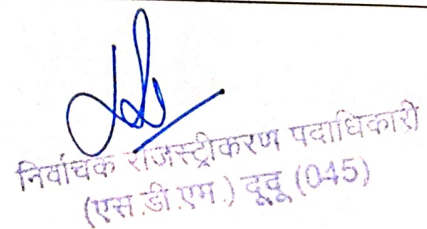 निर्वाचक रजिस्ट्रीकरण पदाधिकारी
(एस.डी.एम.) दूदू (045)